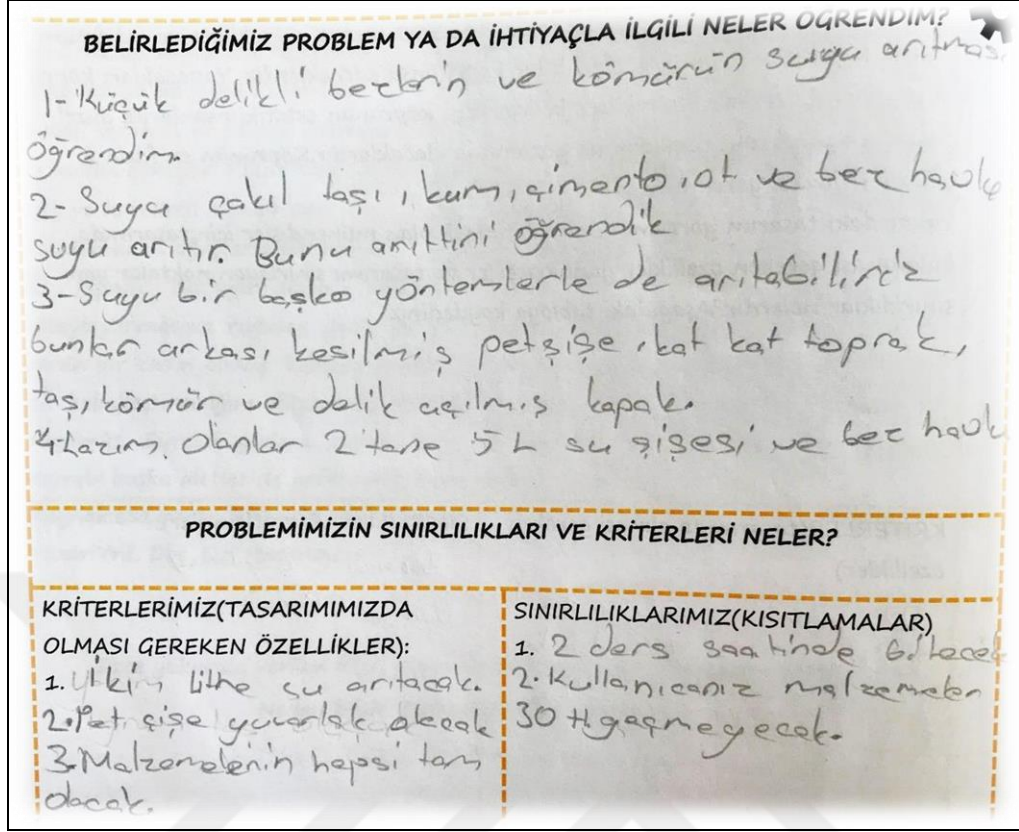 BELİRLEDİĞİMİZ PROBLEM YA DA İHTİYAÇLA İLGİLİ NELER ÖĞRENDİM?
1- Küçük delikli bezlerin ve kömürün suyu arıtması
öğrendim.
2- Suyu çakıl taşı, kum, çimento, ot ve bez havlu
suyu arıtır. Bunu arıttını öğrendik
3- Suyu bir başka yöntemlerle de arıtabiliriz
bunlar arkası kesilmiş petşişe, kat kat toprak,
taş, kömür ve delik açılmış kapak.
4- Lazım olanlar 2 tane 5 L su şişesi ve bez havlu
PROBLEMİMİZİN SINIRLILIKLARI VE KRİTERLERİ NELER?
KRİTERLERİMİZ(TASARIMIMIZDA
OLMASI GEREKEN ÖZELLİKLER):
1. litre su arıtacak.
2. Pet şişe yuvarlak olacak
3. Malzemelerin hepsi tam
olacak.
SINIRLILIKLARIMIZ(KISITLAMALAR)
1. 2 ders saatinde bitecek
2. malzemeler
30 tl geçmeyecek.